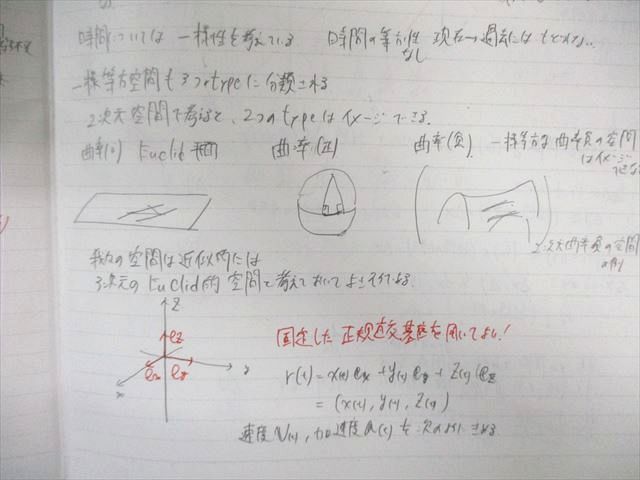 時間については 一様性を考えている 時間の等方性なし 現在→過去にはもどれない..
一様等方空間も3つのtypeに分類される
2次元空間で考えると、2つのtypeはイメージできる.
曲率(0) Euclid平面 曲率(正) 曲率(負) 一様等方な曲率負の空間はイメージできない
2次元曲率負の空間の例
我々の空間は近似的には
3次元のEuclid的空間と考えておいてよさそうである.
z
e_z
e_x e_y
x y
固定した正規直交基底を用いてよい!
r(t) = x(t) e_x + y(t) e_y + z(t) e_z
= (x(t), y(t), z(t))
速度 v(t), 加速度 a(t) も 定義される